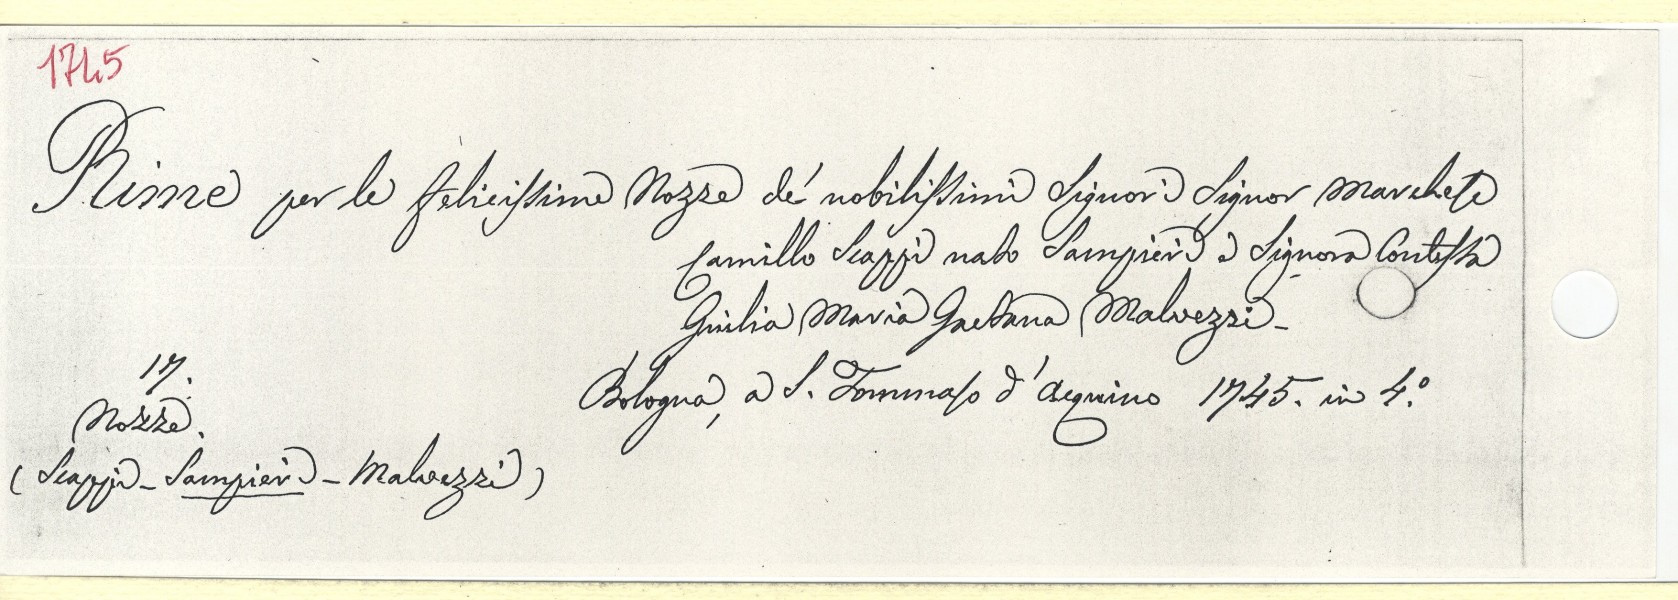 1745
Rime per le felicissime Nozze de' nobilissimi Signori Signor Marchese
Camillo Scappi nato Sampieri e Signora Contessa
Giulia Maria Gaetana Malvezzi -
Bologna, a S. Tommaso d'Aequino 1745. in 4.º
17.
Nozze.
(Scappi - Sampieri - Malvezzi)